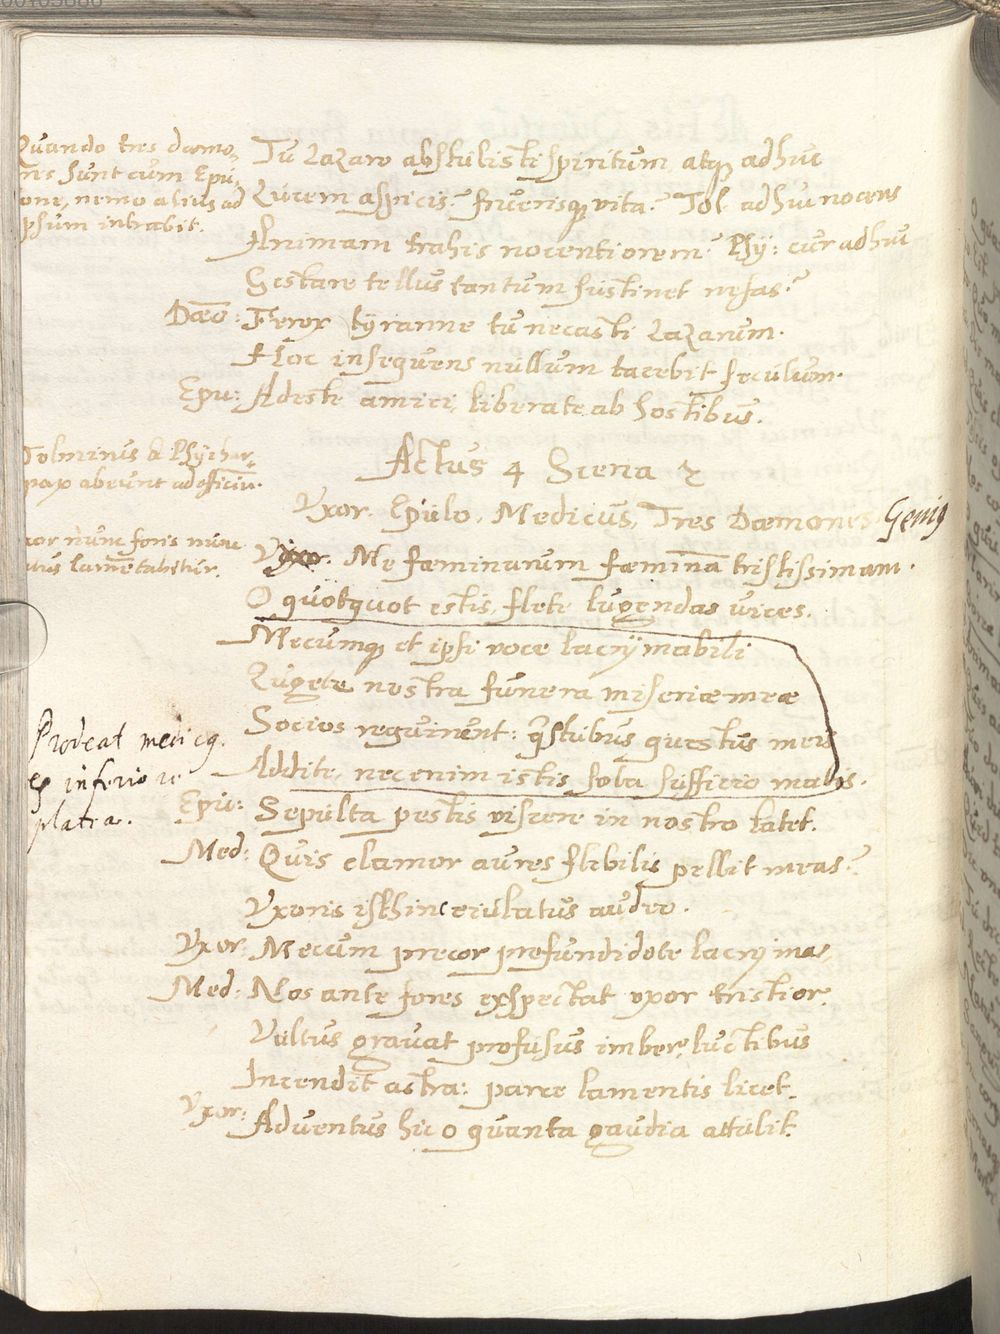 Quando tres dæmo„
nes sunt cum Epu„
lone, nemo alius ad
ipsum intrabit.
Tu Lazaro abstulisti spiritum atq; adhuc
Lucem aspicis? fruerisq; vita? Tol. adhuc nocens
Animam trahis nocentiorem? Psy: cur adhuc
Gestare tellus tantum sustinet nefas?
Dæo: Ferox tyranne tu necasti Lazarum.
Hoc insequens nullum tacebit seculum.
Epu: Adeste amici, liberate ab hostibus.
Tolminus & Psyhar„
pax abeunt ad officiũ.
Actus 4 Scena 2
Vxor. Epulo, Medicus, Tres Dæmones Genig
Vxor nũm foris nũm
intus lamẽtabitur.
Vxor. Me fœminarum fœmina tristissimam.
O quotquot estis, flete lugendas vices.
Mecumq; et ipsi voce lacrymabili
Lugete nostra funera miseriæ meæ
Socios requirunt: q̃stibus questus meis
Addite, nec enim istis sola sufficio malis.
Prodeat mediq.
ex inferiore
platea.
Epu: Sepulta pestis viscere in nostro latet.
Med: Quis clamor aures flebilis pellit meas?
Vxoris isthinc eiulatus audio.
Vxor: Mecum precor profundidote lacrymas,
Med: Nos ante fores exspectat vxor tristior.
Vultus grauat profusus imber, luctibus
Incendit astra: parce lamentis licet.
Vxor: Aduentus hic o quanta gaudia attulit.